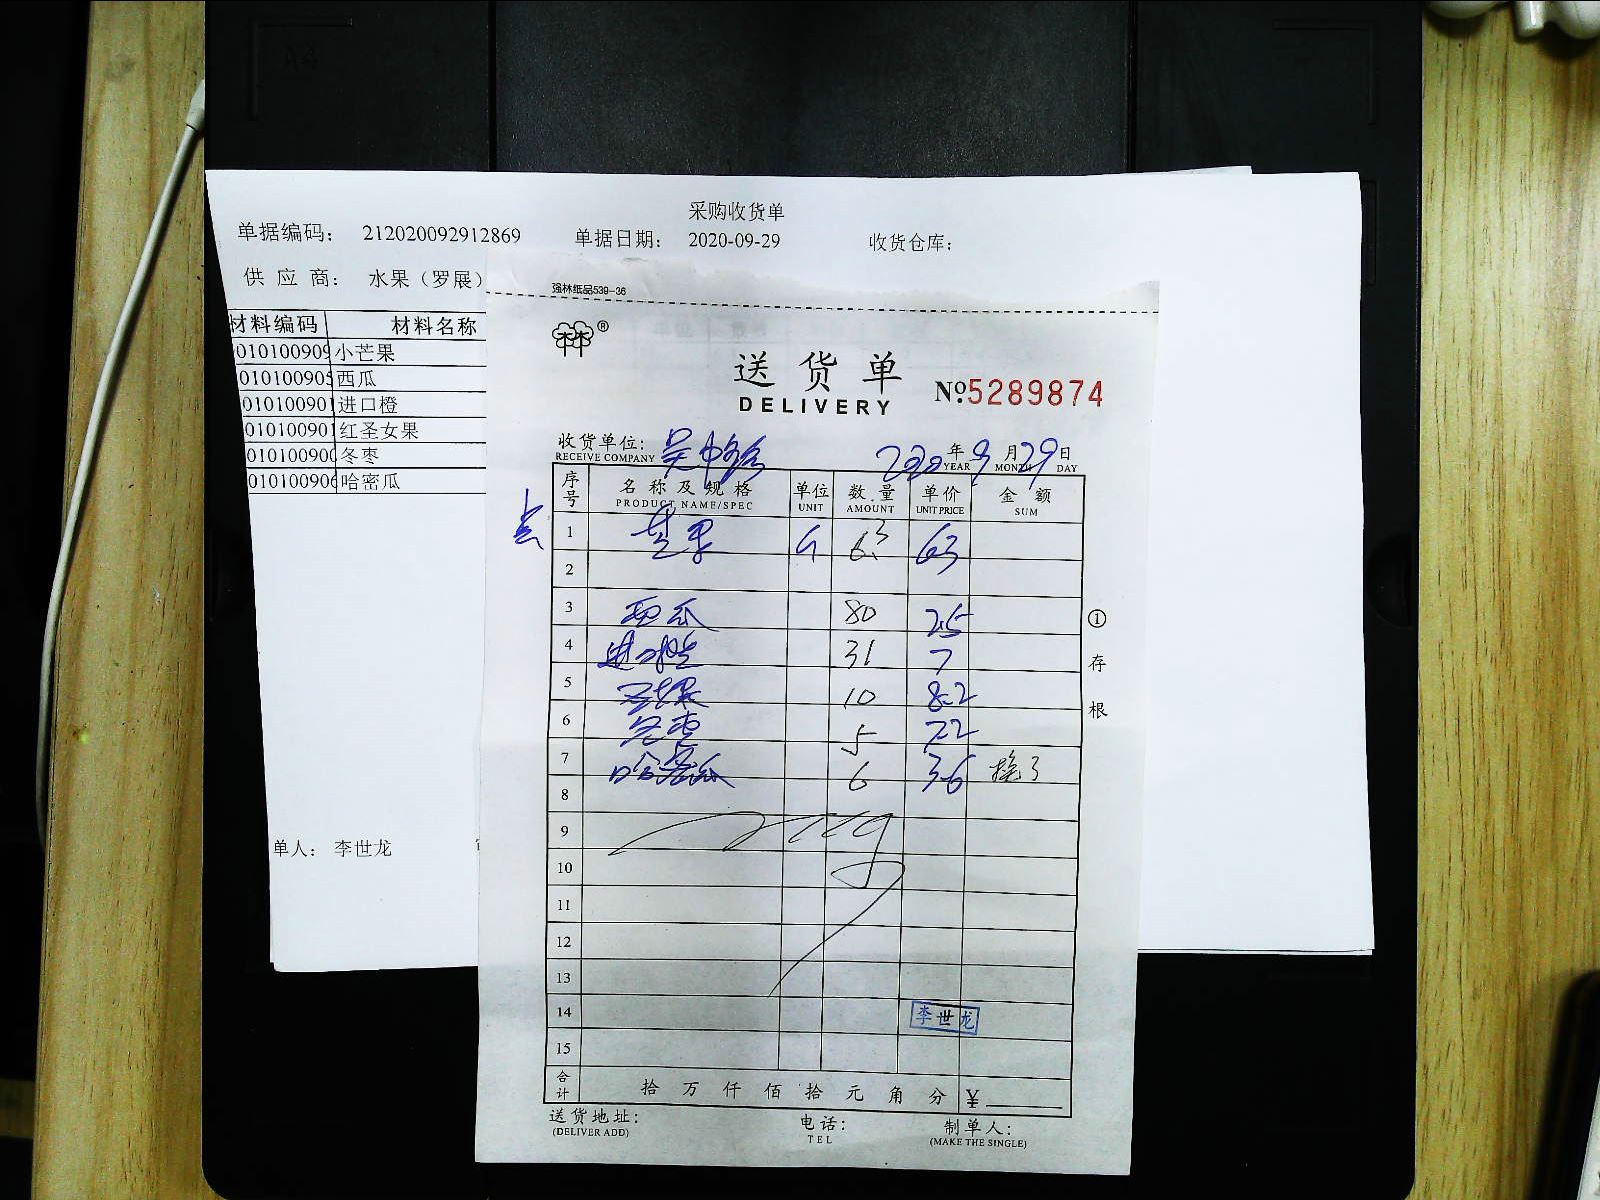 采购收货单
单据编码： 212020092912869 单据日期： 2020-09-29 收货仓库：
供 应 商： 水果（罗展）
材料编码 材料名称
010100909 小芒果
010100905 西瓜
010100901 进口橙
010100901 红圣女果
010100900 冬枣
010100906 哈密瓜
单人： 李世龙
强林纸品539-36
林 ®
送 货 单
DELIVERY
Nº.5289874
收货单位： 吴中路 2020 年 9 月 29 日
RECEIVE COMPANY YEAR MONTH DAY
序号 名 称 及 规 格 单位 数 量 单价 金 额
PRODUCT NAME/SPEC UNIT AMOUNT UNIT PRICE SUM
1 芒果 6.3 6.3
2
3 西瓜 80 2.5
4 进口橙 31 7
5 10 8.2
6 冬枣 5 7.2
7 哈密瓜 6 3.6 换了
8
9
10
11
12
13
14 李世龙
15
合计 拾 万 仟 佰 拾 元 角 分 ¥
① 存 根
送货地址： 电话： 制单人：
(DELIVER ADD) TEL (MAKE THE SINGLE)